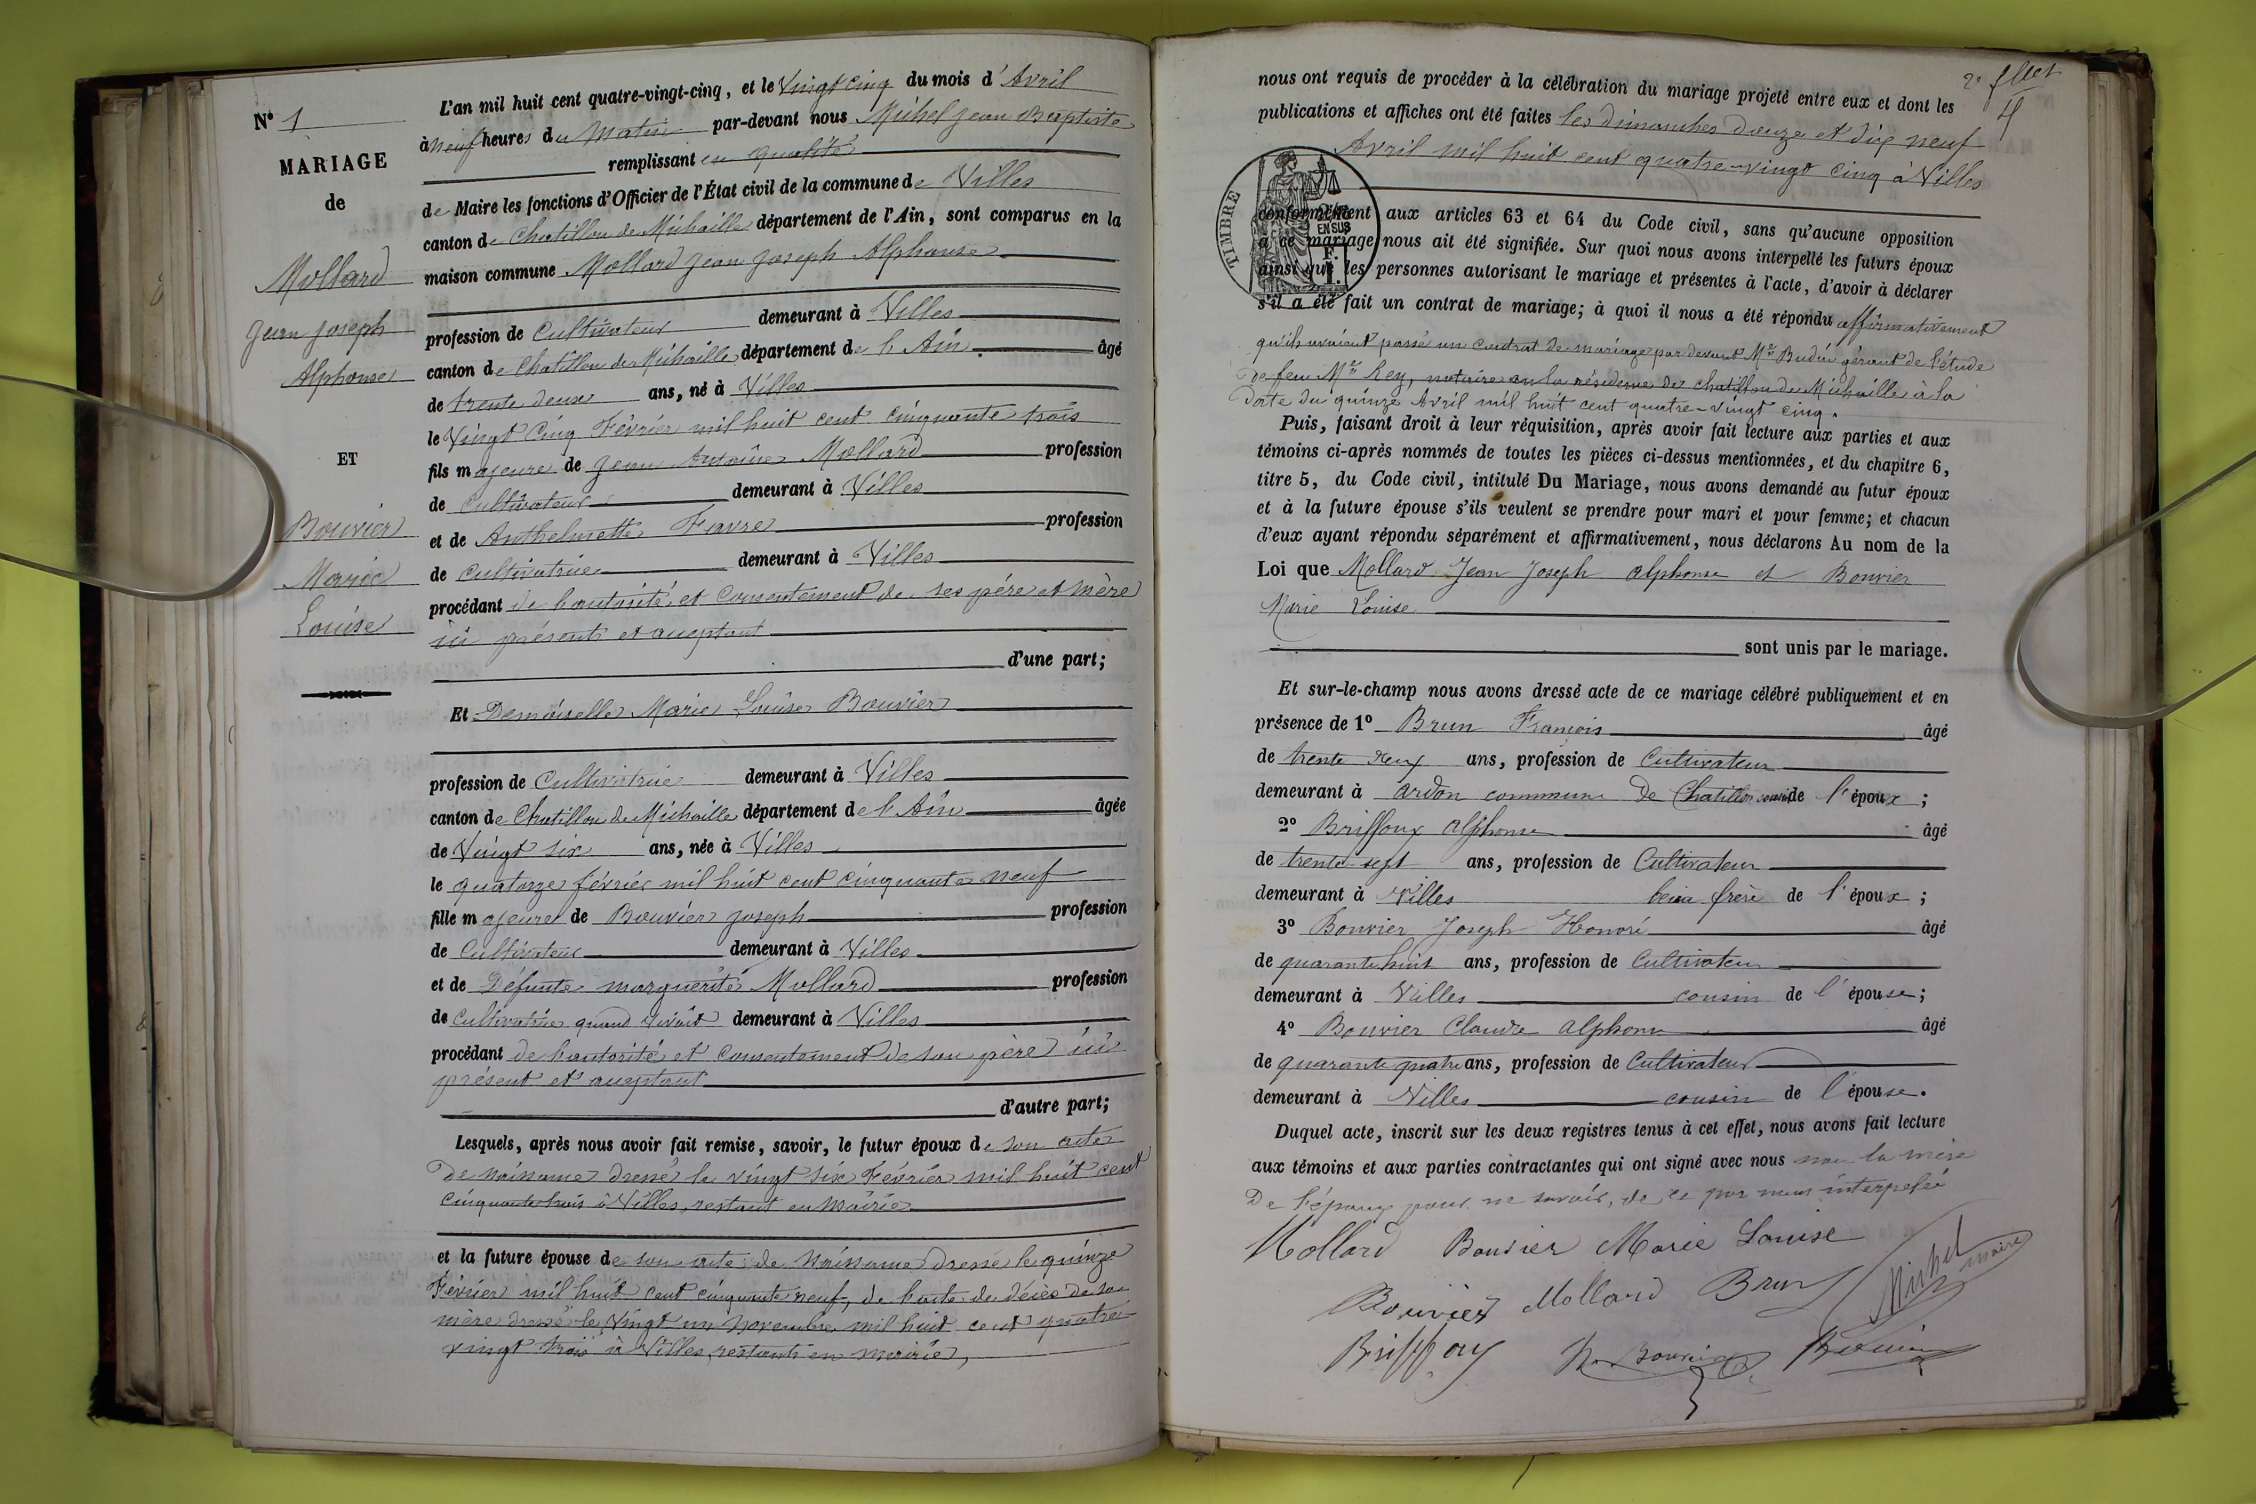 N° 1
MARIAGE
de
Mollard
Jean Joseph
Alphonse
ET
Bouvier
Marie
Louise
L'an mil huit cent quatre-vingt-cinq, et le Vingt cinq du mois d'Avril
à neuf heures du Matin par-devant nous Michel Jean Baptiste
remplissant en qualité
de Maire les fonctions d'Officier de l'État civil de la commune de Villes
canton de Chatillon de Michaille département de l'Ain, sont comparus en la
maison commune Mollard Jean Joseph Alphonse
profession de Cultivateur demeurant à Villes
canton de Chatillon de Michaille département de l'Ain âgé
de trente deux ans, né à Villes
le Vingt Cinq Février mil huit cent cinquante trois
fils majeure de Jean Antoine Mollard profession
de Cultivateur demeurant à Villes
et de Anthelmette Favre profession
de Cultivatrice demeurant à Villes
procédant de l'autorité et Consentement de ses père et mère
ici présents et acceptant
d'une part;
Et Demoiselle Marie Louise Bouvier
profession de Cultivatrice demeurant à Villes
canton de Chatillon de Michaille département de l'Ain âgée
de Vingt six ans, née à Villes
le quatorze février mil huit cent cinquante neuf
fille majeure de Bouvier Joseph profession
de Cultivateur demeurant à Villes
et de Défunte marguerite Mollard profession
de Cultivatrice quand vivait demeurant à Villes
procédant de l'autorité et Consentement de son père ici
présent et acceptant
d'autre part;
Lesquels, après nous avoir fait remise, savoir, le futur époux de son acte
de Naissance dressé le vingt six Février mil huit cent
cinquante trois à Villes, restant en Mairie
et la future épouse de son acte de Naissance dressé le quinze
Février mil huit cent cinquante neuf, de l'acte de décès de sa
mère dressé le Vingt un Novembre mil huit cent quatre
vingt trois à Villes restants en mairie,
2e fllet
4
nous ont requis de procéder à la célébration du mariage projeté entre eux et dont les
publications et affiches ont été faites les dimanches douze et dix neuf
Avril mil huit cent quatre-vingt cinq à Villes
TIMBRE
EN SUS
conformément aux articles 63 et 64 du Code civil, sans qu'aucune opposition
à ce mariage nous ait été signifiée. Sur quoi nous avons interpellé les futurs époux
ainsi que les personnes autorisant le mariage et présentes à l'acte, d'avoir à déclarer
s'il a été fait un contrat de mariage; à quoi il nous a été répondu affirmativement
qu'ils avaient passé un contrat de mariage par devant Me Budin gérant de l'étude
de feu Me Rey, notaire en la résidence de chatillon de Michaille à la
date du quinze Avril mil huit cent quatre-vingt cinq.
Puis, faisant droit à leur réquisition, après avoir fait lecture aux parties et aux
témoins ci-après nommés de toutes les pièces ci-dessus mentionnées, et du chapitre 6,
titre 5, du Code civil, intitulé Du Mariage, nous avons demandé au futur époux
et à la future épouse s'ils veulent se prendre pour mari et pour femme; et chacun
d'eux ayant répondu séparément et affirmativement, nous déclarons Au nom de la
Loi que Mollard Jean Joseph alphonse et Bouvier
Marie Louise
sont unis par le mariage.
Et sur-le-champ nous avons dressé acte de ce mariage célébré publiquement et en
présence de 1° Brun François âgé
de trente deux ans, profession de Cultivateur
demeurant à ardon commune de Chatillon cousin de l'époux;
2° Briffoux alphonse âgé
de trente sept ans, profession de Cultivateur
demeurant à Villes beau frère de l'époux;
3° Bouvier Joseph Honoré âgé
de quarante huit ans, profession de Cultivateur
demeurant à Villes cousin de l'épouse;
4° Bouvier Claude alphonse âgé
de quarante quatre ans, profession de Cultivateur
demeurant à Villes cousin de l'épouse.
Duquel acte, inscrit sur les deux registres tenus à cet effet, nous avons fait lecture
aux témoins et aux parties contractantes qui ont signé avec nous non la mère
De l'époux pour ne savoir, de ce par nous interpelée
Mollard Bouvier Marie Louise
Bouvier Mollard Brun Michel maire
Briffoux Bouvier